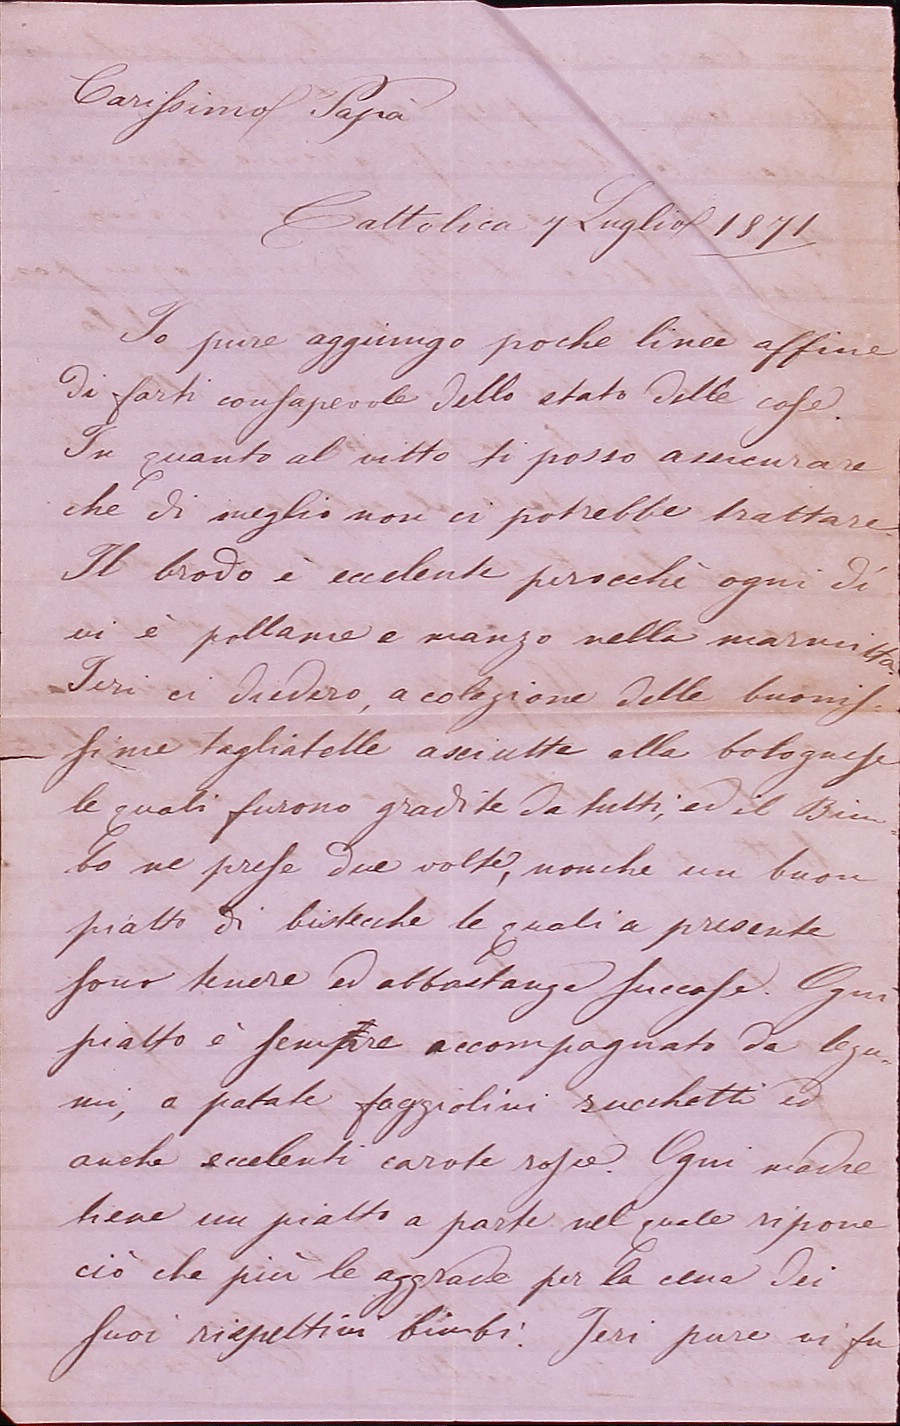 Carissimo Papà
Cattolica 7 Luglio 1871
Io pure aggiungo poche linee affine
di farti consapevole dello stato delle cose.
In quanto al vitto ti posso assicurare
che di meglio non ci potrebbe trattare.
Il brodo è eccelente perocchè ogni dí
vi è pollame e manzo nella marmitta.
Ieri ci diedero, a colazione delle buonis-
sime tagliatelle asciutte alla bolognese
le quali furono gradite da tutti, ed il Bim-
bo ne prese due volte, nonche un buon
piatto di bistecche le quali a presente
sono tenere ed abbastanza succose. Ogni
piatto è sempre accompagnato da legu-
mi, o patate faggiolini zucchetti ed
anche eccelenti carote rosse. Ogni madre
tiene un piatto a parte nel quale ripone
ciò che più le aggrade per la cena dei
suoi rispettivi bimbi. Jeri pure vi fu